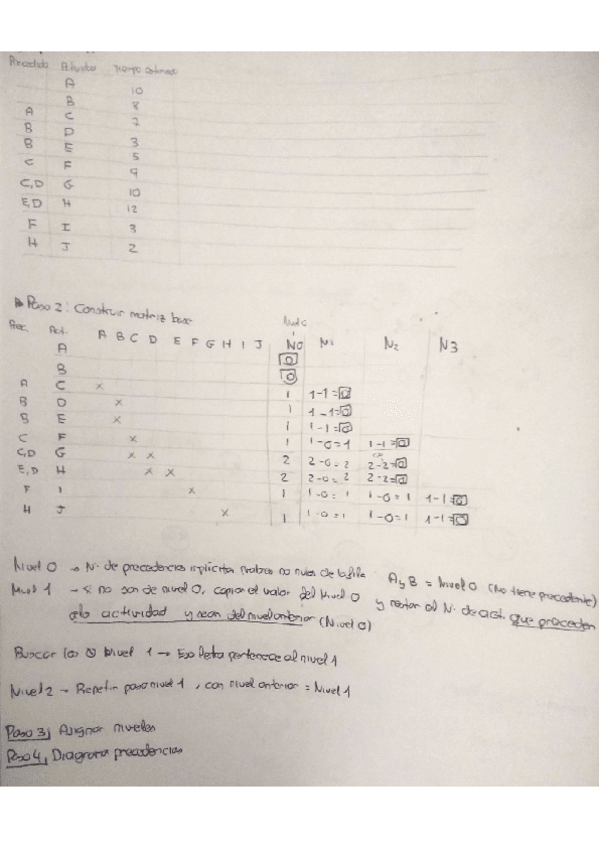 Actividad Tiempo estimado
A 10
B 8
A C 7
B D 3
B E 5
C F 9
C,D G 10
E,D H 12
F I 3
H J 2
Paso 2: Construir matriz base
Nivel 0
Prec. Act. A B C D E F G H I J N0 N1 N2 N3
A 0
B 0
A C x 1 1-1=0
B D x 1 1-1=0
B E x 1 1-1=0
C F x 1 1-0=1 1-1=0
C,D G x x 2 2-0=2 2-2=0
E,D H x x 2 2-0=2 2-2=0
F I x 1 1-0=1 1-0=1 1-1=0
H J x 1 1-0=1 1-0=1 1-1=0
Nivel 0 → Nº de precedencias de la fila A y B = Nivel 0 (No tiene precedente)
Nivel 1 → Si no son de nivel 0, copiar el valor del Nivel 0 y restar al Nº de act. que preceden
a la actividad y sean del nivel anterior (Nivel 0)
Buscar los 0 Nivel 1 → Esa letra pertenece al nivel 1
Nivel 2 → Repetir paso nivel 1, con nivel anterior = Nivel 1
Paso 3, Asignar niveles
Paso 4, Diagrama precedencias